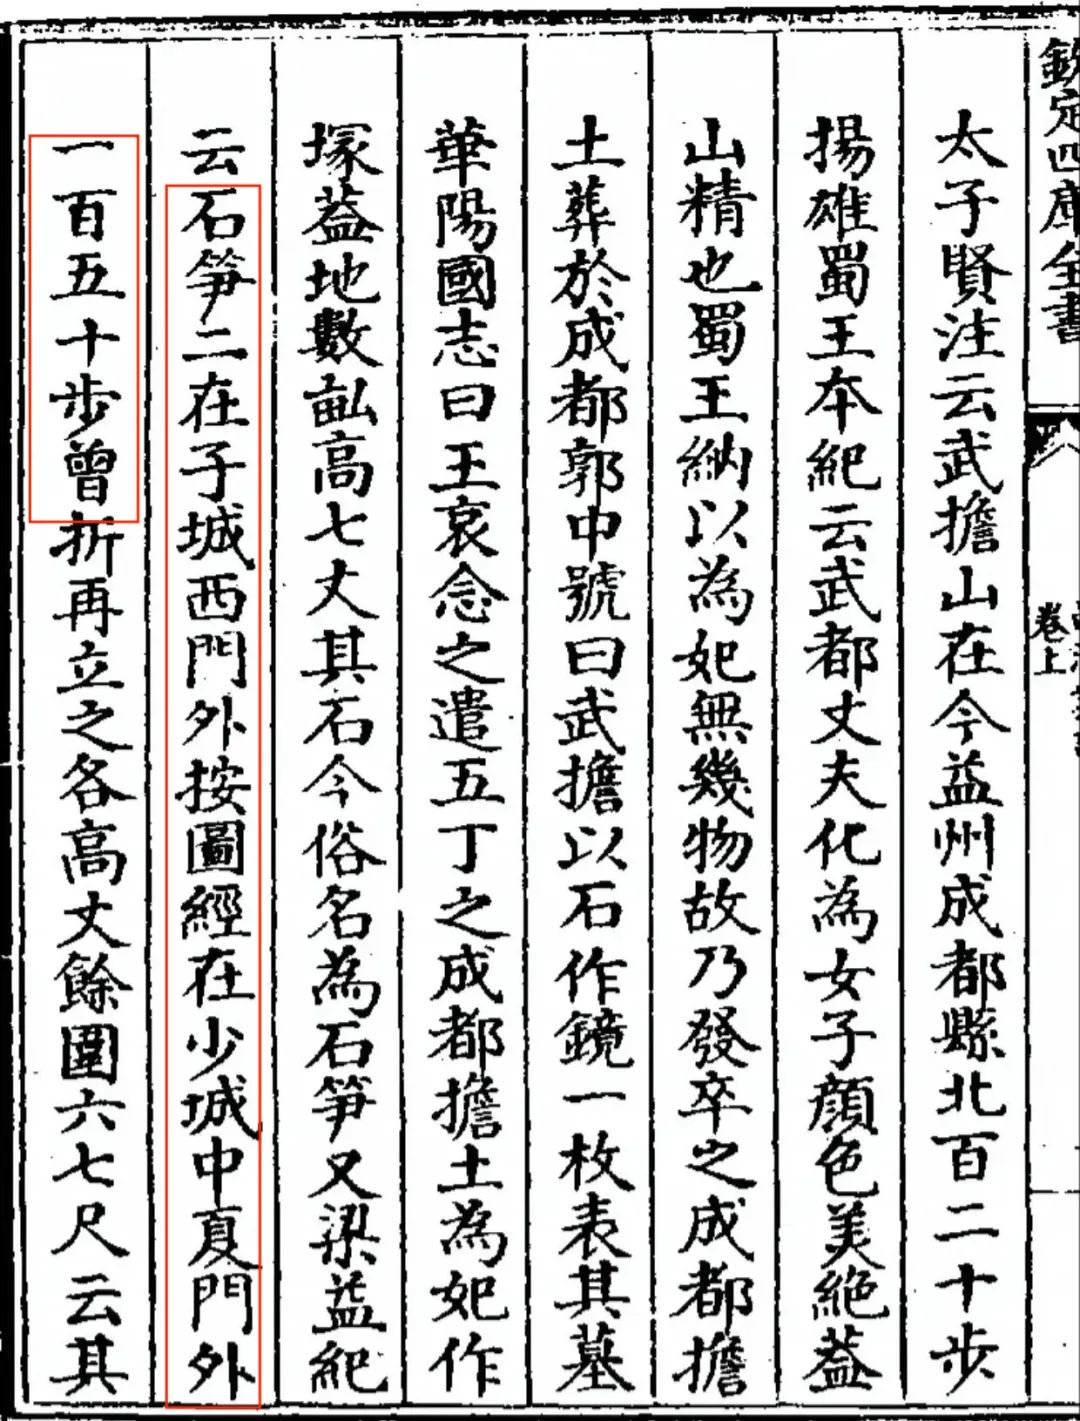 欽定四庫全書
卷上
太子賢注云武擔山在今益州成都縣北百二十步
揚雄蜀王本紀云武都丈夫化為女子顏色美絶葢
山精也蜀王納以為妃無幾物故乃發卒之成都擔
土葬於成都郭中號曰武擔以石作鏡一枚表其墓
華陽國志曰王哀念之遣五丁之成都擔土為妃作
塚葢地數畝高七丈其石今俗名為石笋又梁益紀
云石笋二在子城西門外按圖經在少城中夏門外
一百五十步曾折再立之各高丈餘圍六七尺云其